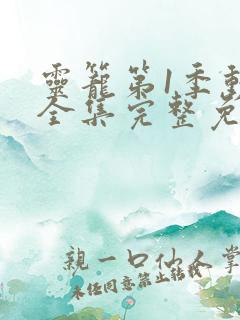 靈籠第1季動
全集完整免
親一口仙人掌
未经同意禁止转载